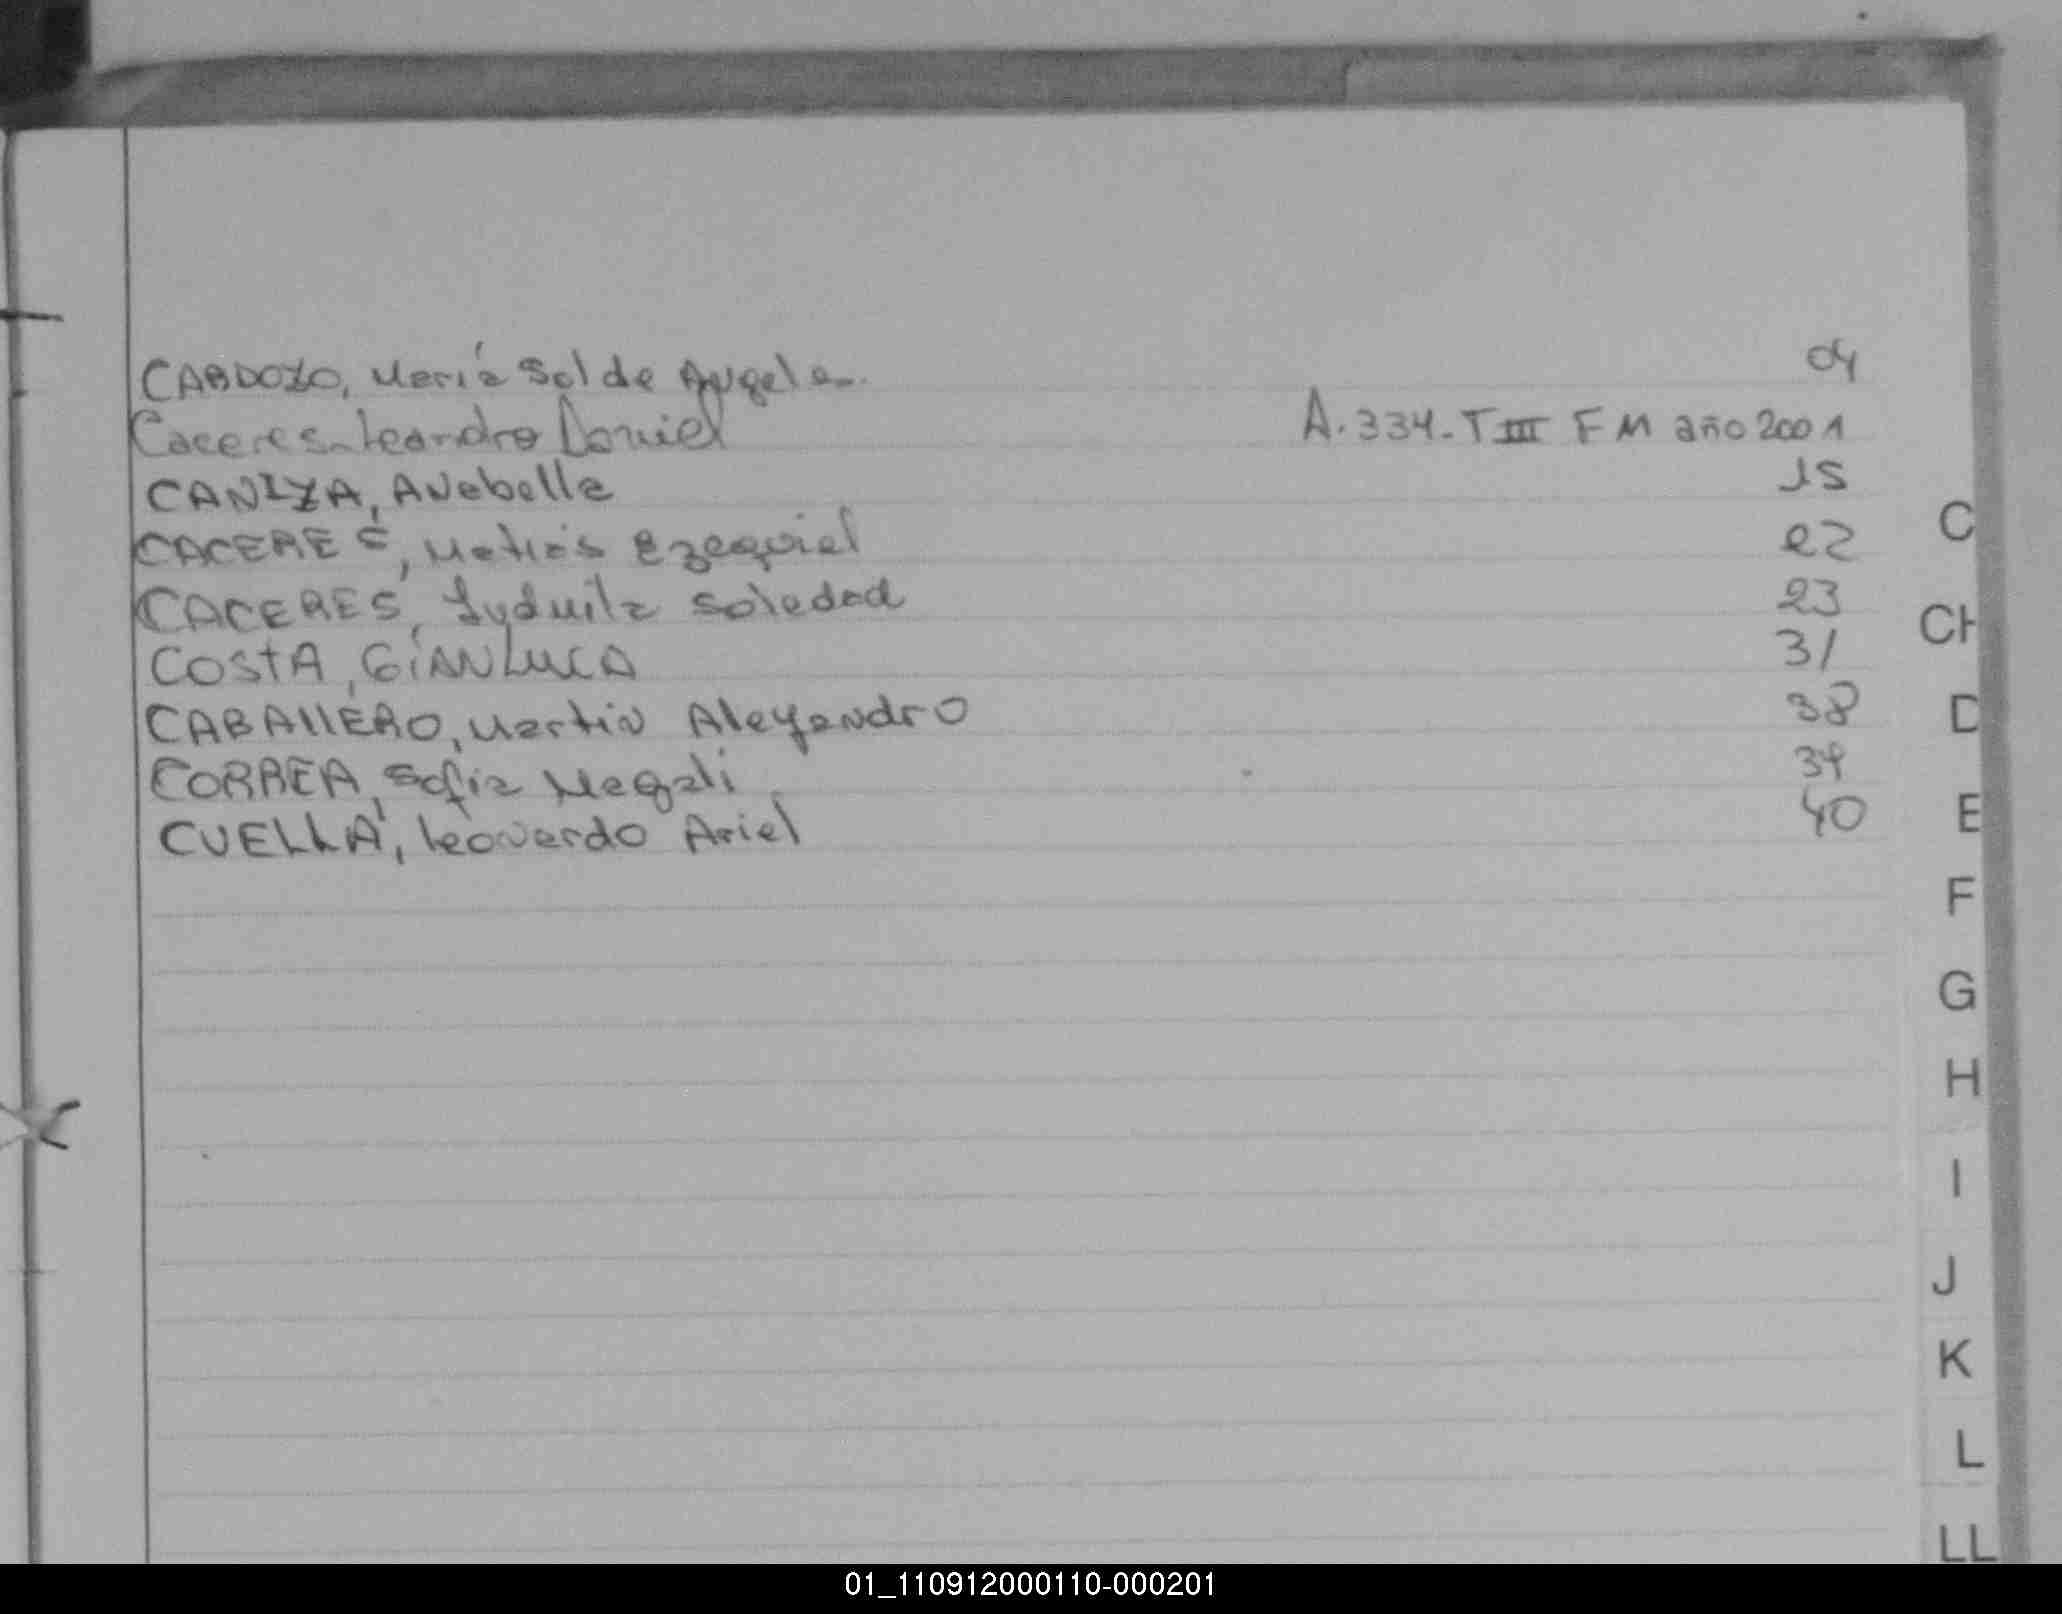 CARDOZO, María Sol de Angela-.
04
Caceres-Leandro Daniel
A.334-TIII FM año 2001
CANIZA, Anabella
15
CACERES, Matías Ezequiel
22
CACERES, Ludmila Soledad
23
COSTA, GIANLUCA
31
CABALLERO, Martin Aleyandro
38
CORREA, Sofia Magali
39
CUELLA, Leonardo Ariel
40
C
CH
D
E
F
G
H
I
J
K
L
LL
01_110912000110-000201